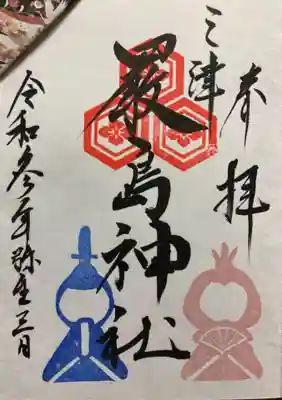 奉拝
三津
嚴島神社
令和参年弥生三日